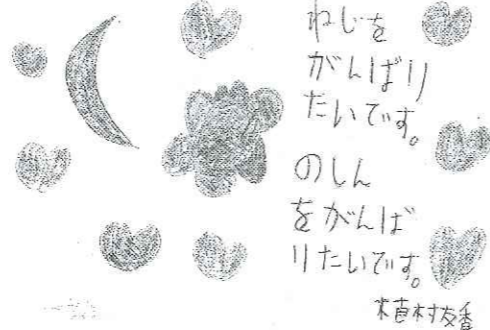 ねじを
がんばり
たいです。
のしん
をがんば
りたいです。
植村友香